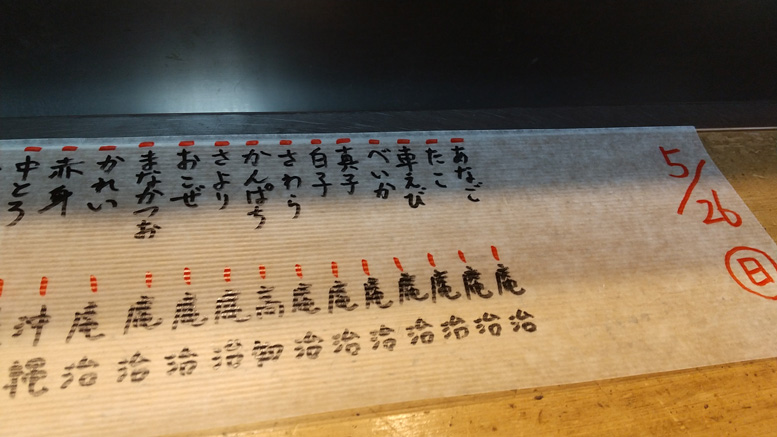 5/26
日
あなご 庵治
たこ 庵治
車えび 庵治
べいか 庵治
真子 庵治
白子 庵治
さわら 庵治
かんぱち 高知
さより 庵治
おこぜ 庵治
まながつお 庵治
かれい 庵治
赤身 沖縄
中とろ